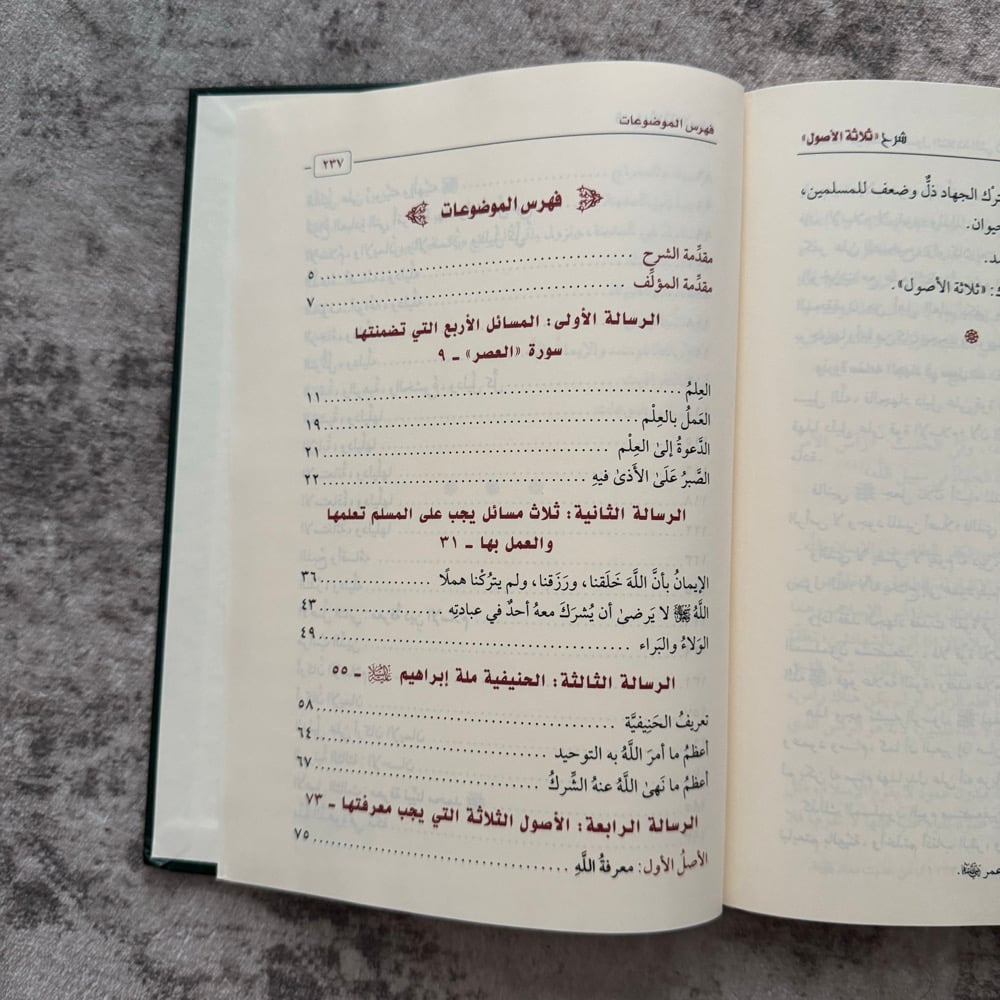 شرح «ثلاثة الأصول»
ترك الجهاد ذلٌّ وضعف للمسلمين،
«ثلاثة الأصول».
فهرس الموضوعات
٢٣٧
فهرس الموضوعات
مقدِّمة الشرح ..... ٥
مقدِّمة المؤلِّف ..... ٧
الرسالة الأولى: المسائل الأربع التي تضمنتها
سورة «العصر» ـ ٩
العِلمُ ..... ١١
العَملُ بالعِلْم ..... ١٩
الدَّعوةُ إلىٰ العِلْم ..... ٢١
الصَّبرُ عَلَىٰ الأَذىٰ فيهِ ..... ٢٢
الرسالة الثانية: ثلاث مسائل يجب على المسلم تعلمها
والعمل بها ـ ٣١
الإيمانُ بأنَّ اللَّهَ خَلَقنا، ورَزَقنا، ولم يتركْنا هملًا ..... ٣٦
اللَّهُ ﷻ لا يَرضىٰ أن يُشرَكَ معهُ أحدٌ في عبادتِه ..... ٤٣
الوَلاءُ والبَراء ..... ٤٩
الرسالة الثالثة: الحنيفية ملة إبراهيم ـ ٥٥
تعريفُ الحَنِيفيَّة ..... ٥٨
أعظمُ ما أمرَ اللَّهُ به التوحيد ..... ٦٤
أعظمُ ما نَهىٰ اللَّهُ عنهُ الشِّركُ ..... ٦٧
الرسالة الرابعة: الأصول الثلاثة التي يجب معرفتها ـ ٧٣
الأصلُ الأول: معرفةُ اللَّهِ ..... ٧٥